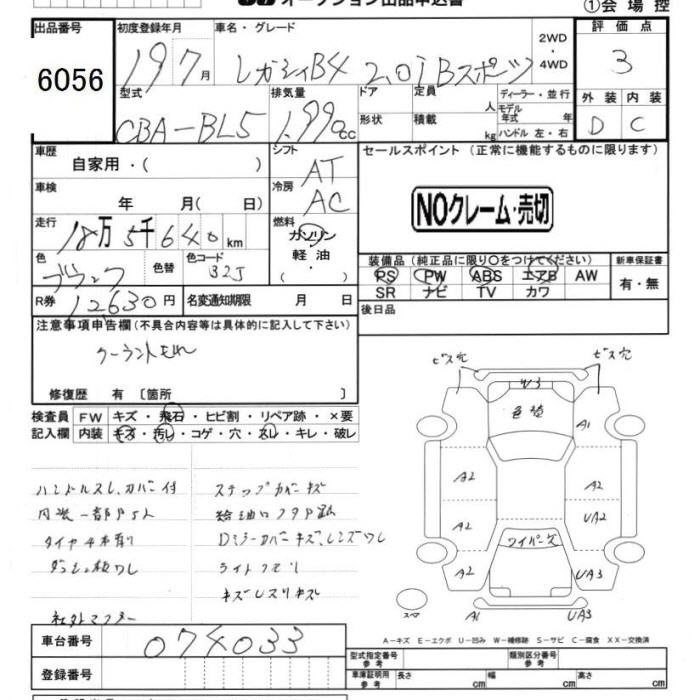 オークション出品申込書
①会場控
出品番号 初度登録年月 車名・グレード 2WD・4WD 評価点
6056 19年7月 レガシィB4 2.0i Bスポーツ 3
型式 排気量 ドア 形状 定員 人 積載 kg ディーラー・並行 モデル年式 年 ハンドル 左・右 外装 内装
CBA-BL5 1,990cc D C
車歴 自家用・( ) シフト AT セールスポイント (正常に機能するものに限ります)
車検 年 月( 日) 冷房 AC
NOクレーム・売切
走行 18万5千640km 燃料 ガソリン・軽油・( )
色 ブラック 色替 色コード 32J
装備品 (純正品に限り○をつけてください) 新車保証書
PS PW ABS エアB AW 有・無
SR ナビ TV カワ
R券 12,630円 名変通知期限 月 日
後日品
注意事項申告欄 (不具合内容等は具体的に記入して下さい)
クーラントもれ
修復歴 有〔箇所 〕
検査員記入欄 FW キズ・飛石・ヒビ割・リペア跡・×要
内装 キズ・汚し・コゲ・穴・スレ・キレ・破レ
ビス穴 ビス穴
W3
色褪
A1
A2 A2
A2 UA2
ワイパーキズ
A2 UA3
スペア A1 UA3
ハンドルスレ、カバー付 ステップカバーキズ
タイヤ4本
ダッシュ板ワレ ライトクモリ
社外マフラー
Dミラーカバーキズ、レンズワレ
A-キズ E-エクボ U-凹み W-補修跡 S-サビ C-腐食 XX-交換済
車台番号 074033
型式指定番号 参考 類別区分番号 参考
登録番号 車庫証明用 参考 長さ cm 幅 cm 高さ cm